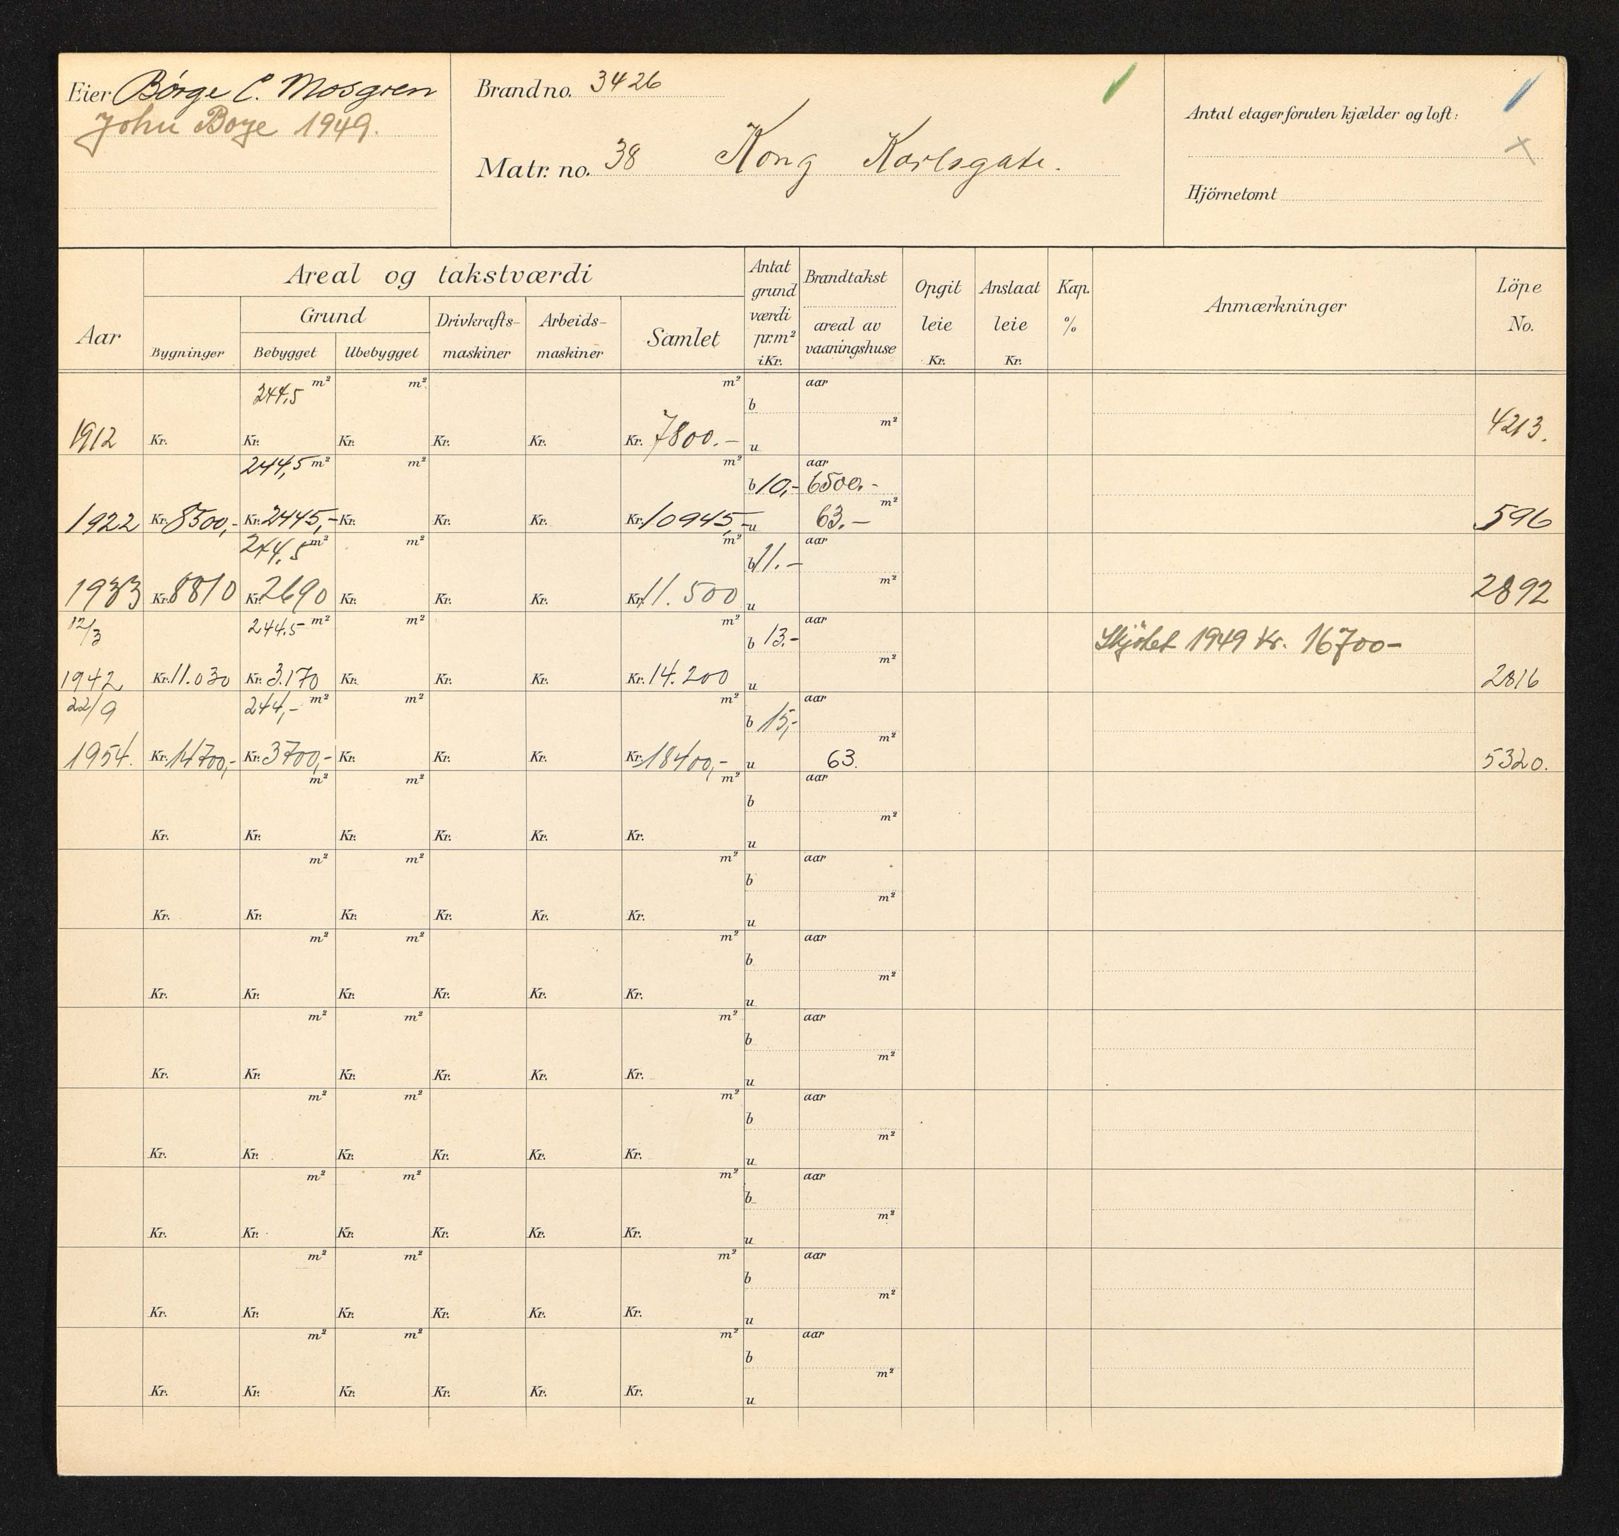 Eier Børge C. Mosgren
John Boye 1949.
Brand no. 3426
Matr. no. 38 Kong Karlsgate.
Antal etager foruten kjælder og loft:
Hjörnetomt
Aar
Areal og takstværdi
Bygninger
Grund
Bebygget
Ubebygget
Drivkrafts-
maskiner
Arbeids-
maskiner
Samlet
Antat
grund
værdi
pr.m²
i Kr.
Brandtakst
areal av
vaaningshuse
Opgit
leie
Kr.
Anslaat
leie
Kr.
Kap.
%
Anmærkninger
Löpe
No.
244,5 m² m² m² b aar
m²
1912 Kr. Kr. Kr. Kr. Kr. Kr. 7800.- u 4213.
244,5 m² m² m² b 10,- aar 6500.-
m²
1922 Kr. 8500,- Kr. 2445,- Kr. Kr. Kr. Kr. 10945,- u 63.- 596
244,5 m² m² m² b 11.- aar
m²
1933 Kr. 8810 Kr. 2690 Kr. Kr. Kr. Kr. 11.500 u 2892
12/3 244.5 m² m² m² b 13.- aar Skjötet 1949 Kr. 16700-
m²
1942 Kr. 11.030 Kr. 3.170 Kr. Kr. Kr. Kr. 14.200 u 2816
22/9 244,- m² m² m² b 15,- aar
m²
1954. Kr. 14700,- Kr. 3700,- Kr. Kr. Kr. Kr. 18400,- u 63. 5320.
m² m² m² b aar
m²
Kr. Kr. Kr. Kr. Kr. Kr. u
m² m² m² b aar
m²
Kr. Kr. Kr. Kr. Kr. Kr. u
m² m² m² b aar
m²
Kr. Kr. Kr. Kr. Kr. Kr. u
m² m² m² b aar
m²
Kr. Kr. Kr. Kr. Kr. Kr. u
m² m² m² b aar
m²
Kr. Kr. Kr. Kr. Kr. Kr. u
m² m² m² b aar
m²
Kr. Kr. Kr. Kr. Kr. Kr. u
m² m² m² b aar
m²
Kr. Kr. Kr. Kr. Kr. Kr. u
m² m² m² b aar
m²
Kr. Kr. Kr. Kr. Kr. Kr. u